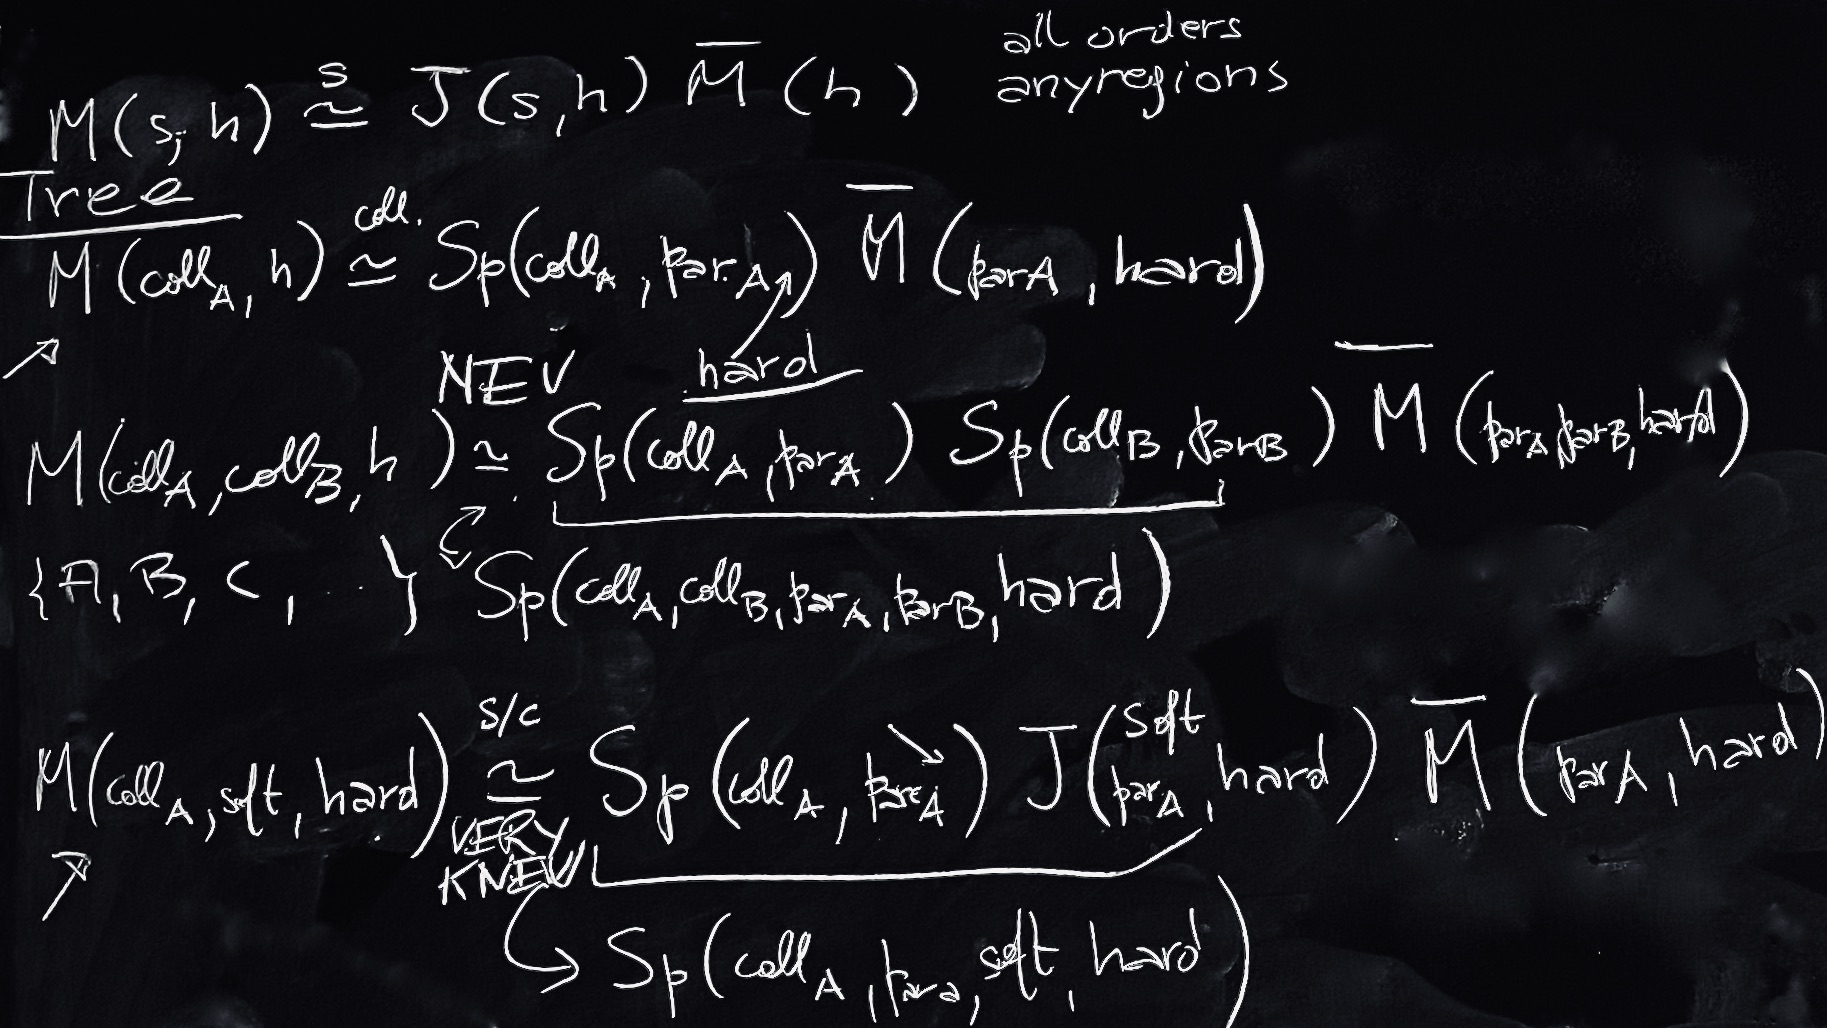 M(s, h) ≃ˢ J(s, h) M̅(h) all orders
any regions
Tree
M(coll_A, h) ≃^coll. Sp(coll_A, par._A) M̅(parA, hard)
NEV hard
M(coll_A, coll_B, h) ≃ Sp(coll_A, par_A) Sp(coll_B, par_B) M̅(par_A, par_B, hard)
{A, B, C, ...} Sp(coll_A, coll_B, par_A, par_B, hard)
M(coll_A, soft, hard) ≃^s/c Sp(coll_A, par_A) J(soft par_A, hard) M̅(parA, hard)
VERY
KNEW
Sp(coll_A, par_a, soft, hard)